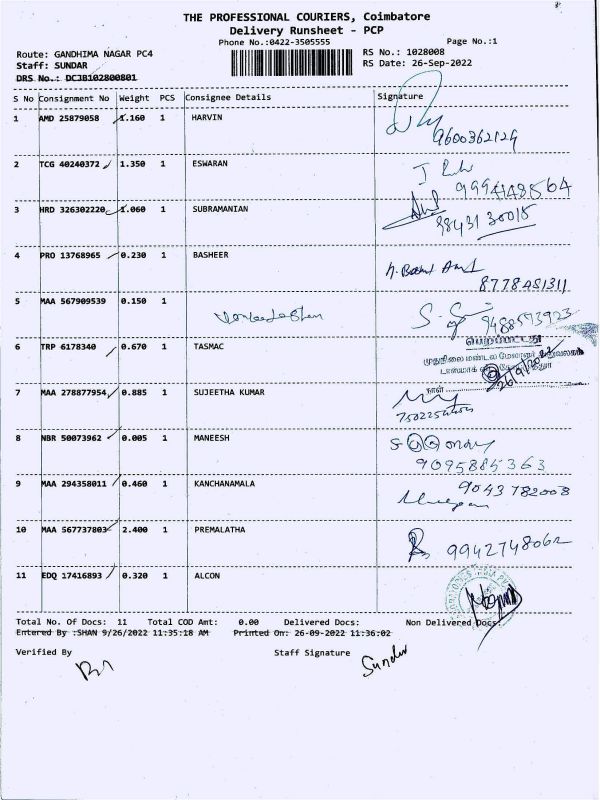 THE PROFESSIONAL COURIERS, Coimbatore
Delivery Runsheet - PCP
Phone No.:0422-3505555
Page No.:1
Route: GANDHIMA NAGAR PC4
RS No.: 1028008
Staff: SUNDAR
RS Date: 26-Sep-2022
DRS No.: DCJB102800801
S No Consignment No Weight PCS Consignee Details Signature
1 AMD 25879058 1.160 1 HARVIN
9600362129
2 TCG 40240372 1.350 1 ESWARAN
9994148564
3 HRD 326302220 1.060 1 SUBRAMANIAN
9843130015
4 PRO 13768965 0.230 1 BASHEER
8778481311
5 MAA 567909539 0.150 1
9488573923
6 TRP 6178340 0.670 1 TASMAC
பெறப்பட்டது
26/9/2022
நாள்
7 MAA 278877954 0.885 1 SUJEETHA KUMAR
8 NBR 50073962 0.005 1 MANEESH
9095885363
9 MAA 294358011 0.460 1 KANCHANAMALA
9043782008
10 MAA 567737803 2.400 1 PREMALATHA
9942748062
11 EDQ 17416893 0.320 1 ALCON
Total No. Of Docs: 11 Total COD Amt: 0.00 Delivered Docs: Non Delivered Docs:
Entered By :SHAN 9/26/2022 11:35:18 AM Printed On: 26-09-2022 11:36:02
Verified By Staff Signature
Sundar